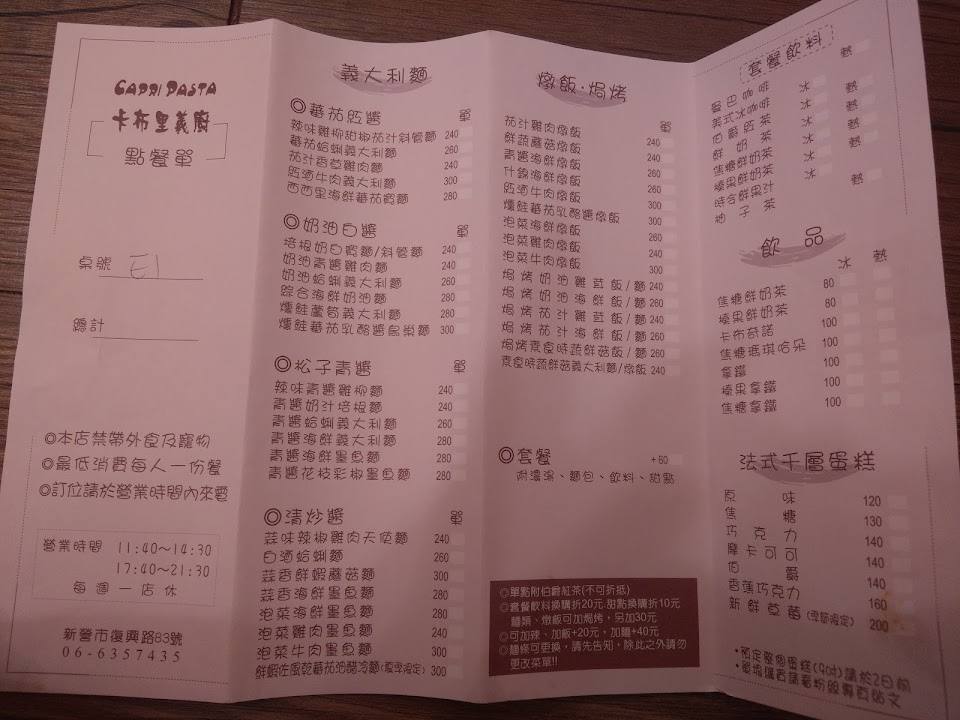 CAPRI PASTA
卡布里義廚
點餐單
桌號 E1
總計
◎本店禁帶外食及寵物
◎最低消費每人一份餐
◎訂位請於營業時間內來電
營業時間 11:40～14:30
17:40～21:30
每週一店休
新營市復興路83號
06-6357435
義大利麵
◎蕃茄肉醬 單
辣味雞柳甜椒茄汁斜管麵 240
蕃茄蛤蜊義大利麵 260
茄汁香草雞肉麵 240
紅酒牛肉義大利麵 300
西西里海鮮蕃茄寬麵 280
◎奶油白醬 單
培根奶白寬麵/斜管麵 240
奶油青醬雞肉麵 240
奶油蛤蜊義大利麵 260
綜合海鮮奶油麵 280
燻鮭蘆筍義大利麵 280
燻鮭蕃茄乳酪醬鳥巢麵 300
◎松子青醬 單
辣味青醬雞柳麵 240
青醬奶汁培根麵 240
青醬蛤蜊義大利麵 260
青醬海鮮義大利麵 280
青醬海鮮墨魚麵 280
青醬花枝彩椒墨魚麵 280
◎清炒醬 單
蒜味辣椒雞肉天使麵 240
白酒蛤蜊麵 260
蒜香鮮蝦蘑菇麵 300
蒜香海鮮墨魚麵 280
泡菜海鮮墨魚麵 280
泡菜雞肉墨魚麵 240
泡菜牛肉墨魚麵 300
鮮蝦佐風乾蕃茄油醋冷麵(夏季限定) 300
燉飯·焗烤
單
茄汁雞肉燉飯 240
鮮蔬蘑菇燉飯 240
青醬海鮮燉飯 260
什錦海鮮燉飯 260
紅酒牛肉燉飯 300
燻鮭蕃茄乳酪醬燉飯 300
泡菜海鮮燉飯 260
泡菜雞肉燉飯 240
泡菜牛肉燉飯 300
焗烤奶油雞菇飯/麵 240
焗烤奶油海鮮飯/麵 260
焗烤茄汁雞菇飯/麵 240
焗烤茄汁海鮮飯/麵 260
焗烤素食時蔬鮮菇飯/麵 260
素食時蔬鮮菇義大利麵/燉飯 240
◎套餐 +60
附濃湯、麵包、飲料、甜點
◎單點附伯爵紅茶(不可折抵)
◎套餐飲料換購折20元.甜點換購折10元
麵類、燉飯可加焗烤，另加30元
◎可加辣、加飯+20元，加麵+40元
◎麵條可更換，請先告知，除此之外請勿
更改菜單!!
套餐飲料
熱
曼巴咖啡 冰 熱
美式冰咖啡 冰
伯爵紅茶 冰 熱
鮮奶茶 冰 熱
焦糖鮮奶茶 冰 熱
榛果鮮奶茶 冰 熱
時令鮮果汁 冰
柚子茶 熱
飲品
冰 熱
焦糖鮮奶茶 80
榛果鮮奶茶 80
卡布奇諾 100
焦糖瑪琪哈朵 100
拿鐵 100
榛果拿鐵 100
焦糖拿鐵 100
法式千層蛋糕
原味 120
焦糖 130
巧克力 140
摩卡可可 140
伯爵 140
香蕉巧克力 160
新鮮草莓(季節限定) 200
•預定整個蛋糕(9吋)請於2日前